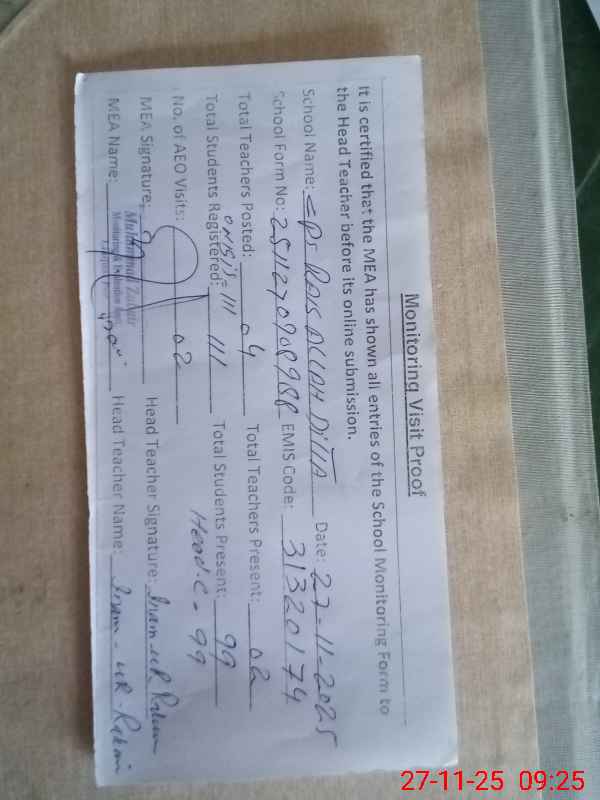 Monitoring Visit Proof
It is certified that the MEA has shown all entries of the School Monitoring Form to
the Head Teacher before its online submission.
School Name: RAIS ALLAH DiTTA Date: 27-11-2025
School Form No: EMIS Code: 31320174
Total Teachers Posted: 04 Total Teachers Present: 02
Total Students Registered: 111 Total Students Present: 99
ON SIS = 111 Head.C - 99
No. of AEO Visits: 02
MEA Signature: Head Teacher Signature: Inam-UR
MEA Name: Head Teacher Name: Inam-UR-
27-11-25 09:25